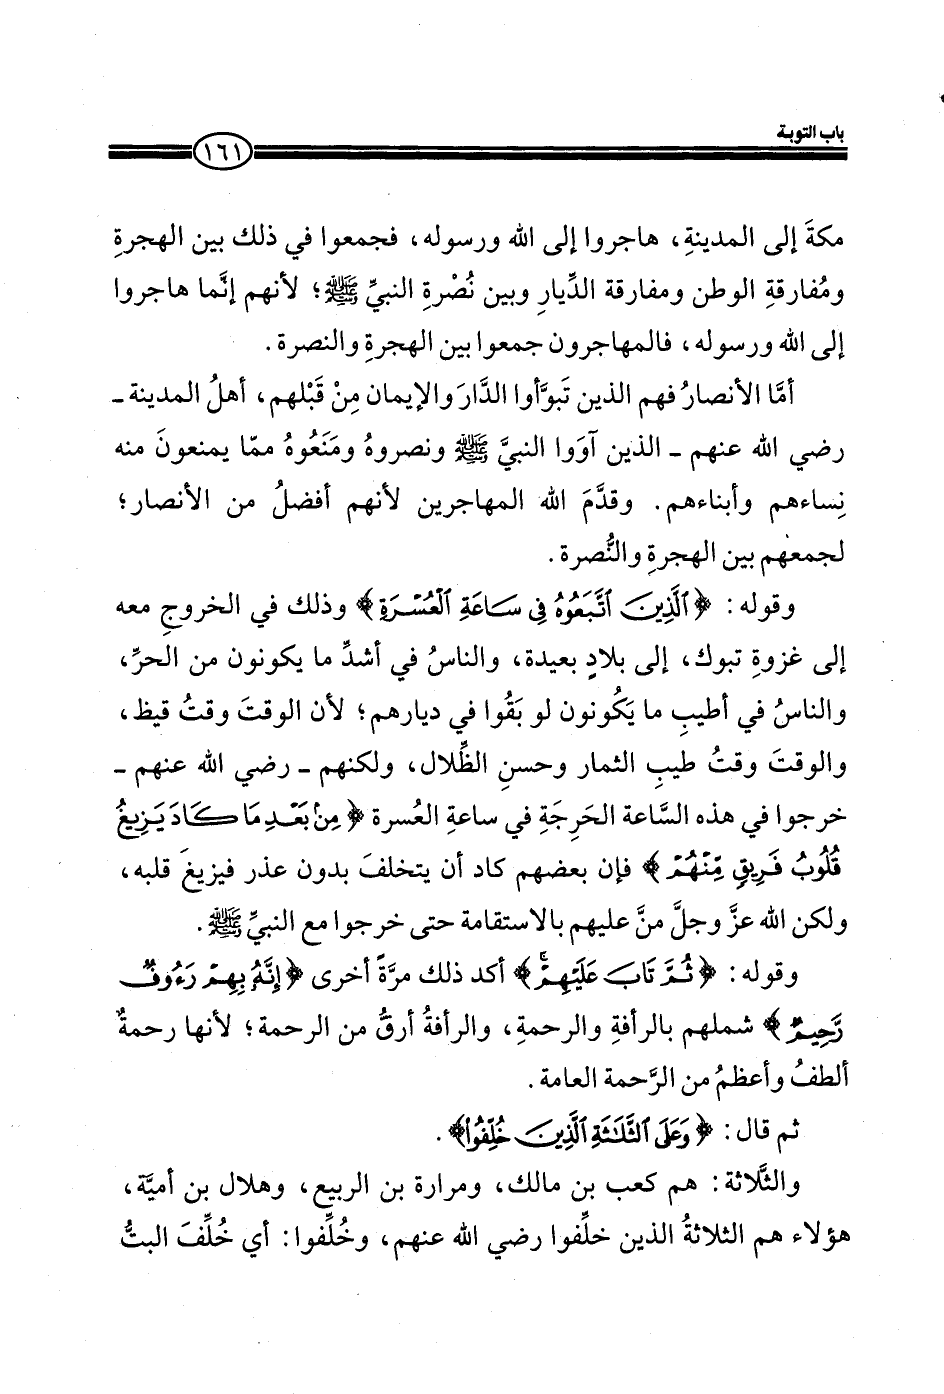 باب التوبة
١٦١
مكةَ إلى المدينةِ، هاجروا إلى الله ورسوله، فجمعوا في ذلك بين الهجرةِ
ومُفارقةِ الوطن ومفارقة الدِّيارِ وبين نُصْرةِ النبيِّ ﷺ؛ لأنهم إنَّما هاجروا
إلى الله ورسوله، فالمهاجرون جمعوا بين الهجرةِ والنصرة.
أمَّا الأنصارُ فهم الذين تَبوَّأوا الدَّارَ والإيمان مِنْ قَبْلهم، أهلُ المدينة ـ
رضي الله عنهم ـ الذين آوَوا النبيَّ ﷺ ونصروهُ ومَنَعُوهُ ممّا يمنعونَ منه
نِساءهم وأبناءهم. وقدَّمَ الله المهاجرين لأنهم أفضلُ من الأنصار؛
لجمعهم بين الهجرةِ والنُّصرة.
وقوله: ﴿ٱلَّذِينَ ٱتَّبَعُوهُ فِى سَاعَةِ ٱلْعُسْرَةِ﴾ وذلك في الخروجِ معه
إلى غزوةِ تبوك، إلى بلادٍ بعيدة، والناسُ في أشدِّ ما يكونون من الحرِّ،
والناسُ في أطيبِ ما يَكُونون لو بَقُوا في ديارهم؛ لأن الوقتَ وقتُ قيظ،
والوقتَ وقتُ طيبِ الثمار وحسنِ الظِّلال، ولكنهم ـ رضي الله عنهم ـ
خرجوا في هذه السَّاعة الحَرِجَةِ في ساعةِ العُسرة ﴿مِنۢ بَعْدِ مَا كَادَ يَزِيغُ
قُلُوبُ فَرِيقٍ مِّنْهُمْ﴾ فإن بعضهم كاد أن يتخلفَ بدون عذر فيزيغَ قلبه،
ولكن الله عزَّ وجلَّ منَّ عليهم بالاستقامة حتى خرجوا مع النبيِّ ﷺ.
وقوله: ﴿ثُمَّ تَابَ عَلَيْهِمْ﴾ أكد ذلك مرَّةً أخرى ﴿إِنَّهُۥ بِهِمْ رَءُوفٌ
رَّحِيمٌ﴾ شملهم بالرأفةِ والرحمةِ، والرأفةُ أرقُّ من الرحمة؛ لأنها رحمةٌ
ألطفُ وأعظمُ من الرَّحمة العامة.
ثم قال: ﴿وَعَلَى ٱلثَّلَٰثَةِ ٱلَّذِينَ خُلِّفُوا۟﴾.
والثَّلاثة: هم كعب بن مالك، ومرارة بن الربيع، وهلال بن أميَّة،
هؤلاء هم الثلاثةُ الذين خلِّفوا رضي الله عنهم، وخُلِّفوا: أي خُلِّفَ البتُّ